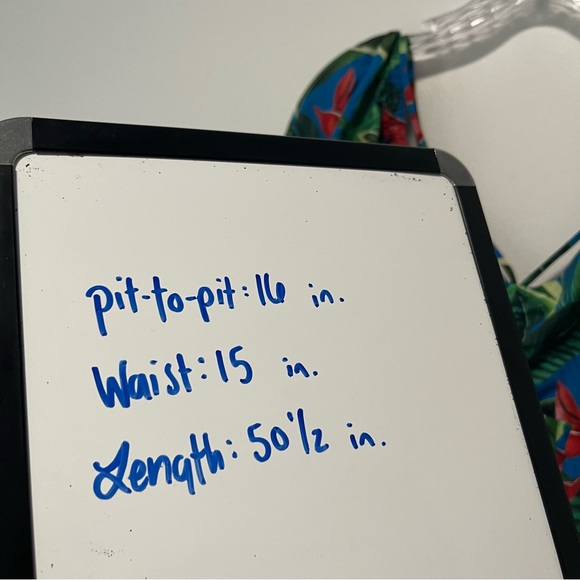 pit-to-pit: 16 in.
Waist: 15 in.
Length: 50 1/2 in.